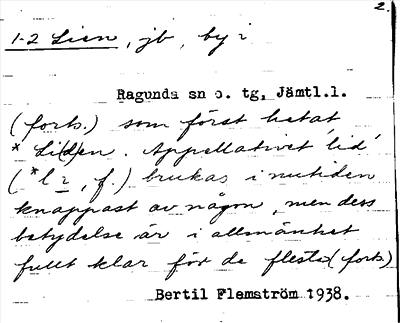 2.
1-2 Lien, jb, by i
Ragunda sn o. tg, Jämtl.l.
(forts.) som först hetat
*Li(d)en. Appellativet 'lid'
(*l ɪ, f.) brukas i nutiden
knappast av någon, men dess
betydelse är i allmänhet
fullt klar för de flesta (forts.)
Bertil Flemström 1938.